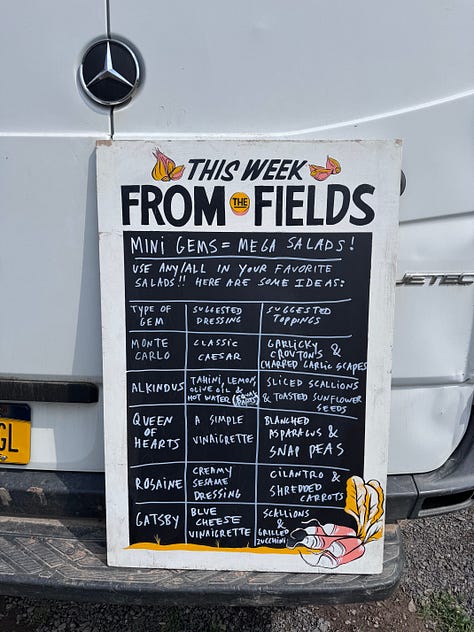 THIS WEEK
FROM THE FIELDS
MINI GEMS = MEGA SALADS!
USE ANY/ALL IN YOUR FAVORITE
SALADS!! HERE ARE SOME IDEAS:
TYPE OF GEM
SUGGESTED DRESSING
SUGGESTED TOPPINGS
MONTE CARLO
CLASSIC CAESAR
GARLICKY CROUTONS & CHARRED GARLIC SCAPES
ALKINDUS
TAHINI, LEMON, OLIVE OIL & HOT WATER (EQUAL PARTS)
SLICED SCALLIONS & TOASTED SUNFLOWER SEEDS
QUEEN OF HEARTS
A SIMPLE VINAIGRETTE
BLANCHED ASPARAGUS & SNAP PEAS
ROSAINE
CREAMY SESAME DRESSING
CILANTRO & SHREDDED CARROTS
GATSBY
BLUE CHEESE VINAIGRETTE
SCALLIONS & GRILLED ZUCCHINI
JETEC
GL